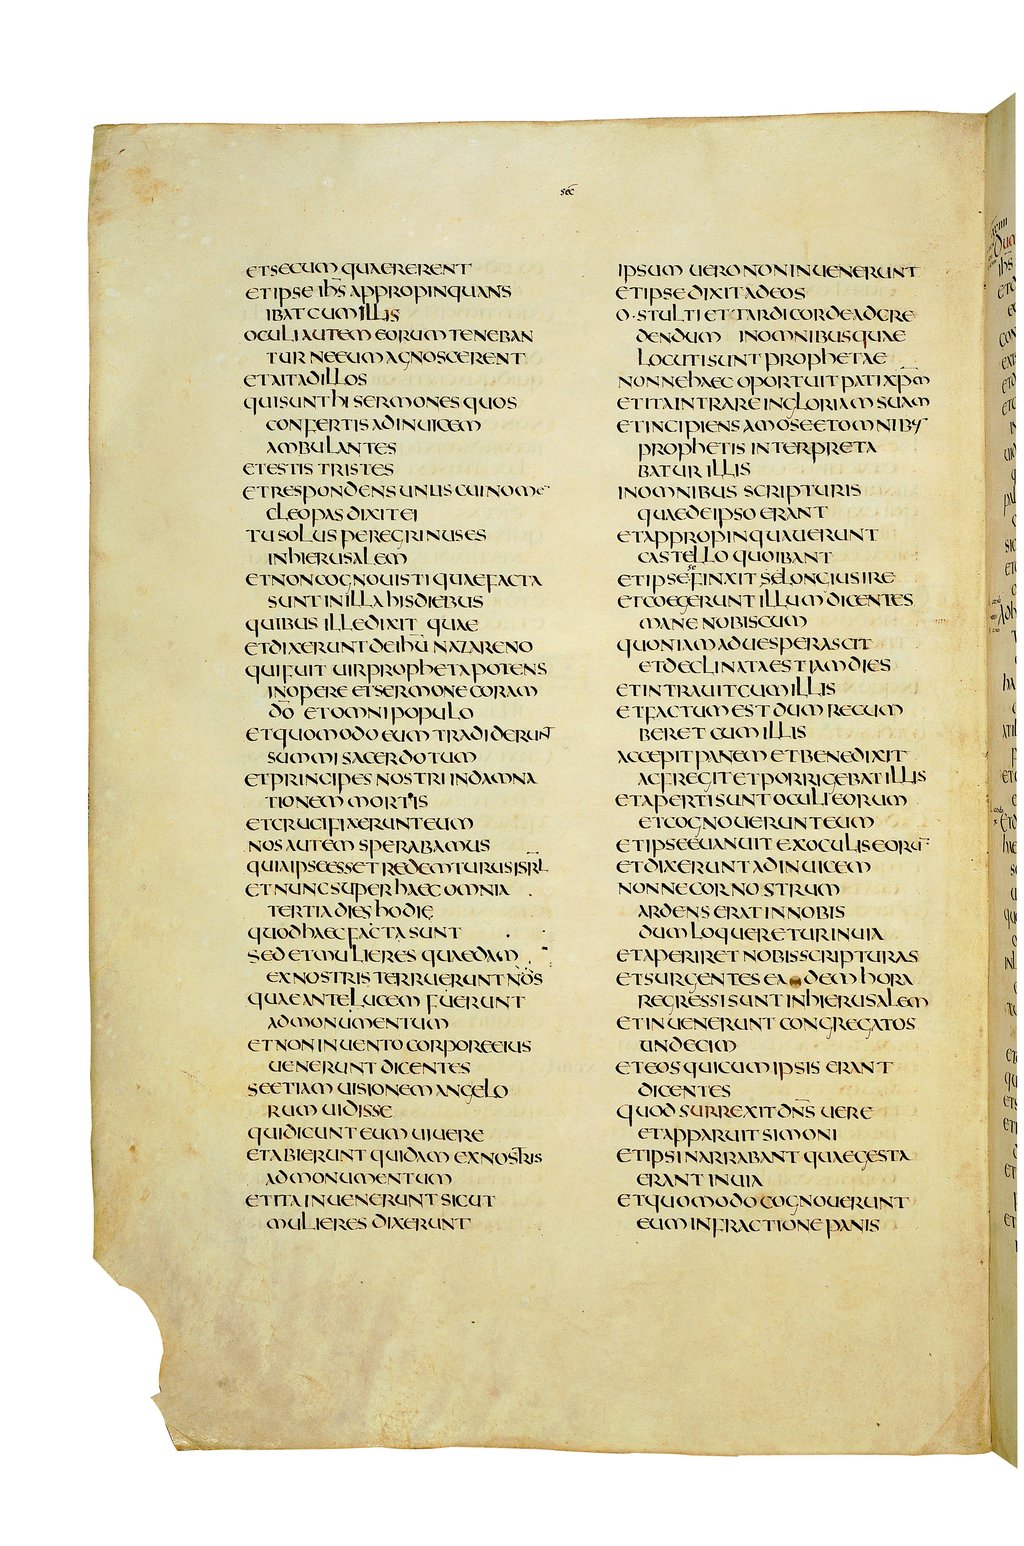 sec
ET SECUM QUAERERENT
ET IPSE IHS APPROPINQUANS
IBAT CUM ILLIS
OCULI AUTEM EORUM TENEBAN
TUR NE EUM AGNOSCERENT
ET AIT AD ILLOS
QUI SUNT HI SERMONES QUOS
CONFERTIS AD INUICEM
AMBULANTES
ET ESTIS TRISTES
ET RESPONDENS UNUS CUI NOME
CLEOPAS DIXIT EI
TU SOLUS PEREGRINUS ES
IN HIERUSALEM
ET NON COGNOUISTI QUAE FACTA
SUNT IN ILLA HIS DIEBUS
QUIBUS ILLE DIXIT QUAE
ET DIXERUNT DE IHU NAZARENO
QUI FUIT UIR PROPHETA POTENS
IN OPERE ET SERMONE CORAM
DO ET OMNI POPULO
ET QUOMODO EUM TRADIDERUNT
SUMMI SACERDOTUM
ET PRINCIPES NOSTRI IN DAMNA
TIONEM MORTIS
ET CRUCIFIXERUNT EUM
NOS AUTEM SPERABAMUS
QUIA IPSE ESSET REDEMTURUS ISRL
ET NUNC SUPER HAEC OMNIA
TERTIA DIES HODIE
QUOD HAEC FACTA SUNT
SED ET MULIERES QUAEDAM
EX NOSTRIS TERRUERUNT NOS
QUAE ANTE LUCEM FUERUNT
AD MONUMENTUM
ET NON INUENTO CORPORE EIUS
UENERUNT DICENTES
SE ETIAM UISIONEM ANGELO
RUM UIDISSE
QUI DICUNT EUM UIUERE
ET ABIERUNT QUIDAM EX NOSTRIS
AD MONUMENTUM
ET ITA INUENERUNT SICUT
MULIERES DIXERUNT
IPSUM UERO NON INUENERUNT
ET IPSE DIXIT AD EOS
O STULTI ET TARDI CORDE AD CRE
DENDUM IN OMNIBUS QUAE
LOCUTI SUNT PROPHETAE
NONNE HAEC OPORTUIT PATI XPM
ET ITA INTRARE IN GLORIAM SUAM
ET INCIPIENS A MOSE ET OMNIB;
PROPHETIS INTERPRETA
BATUR ILLIS
IN OMNIBUS SCRIPTURIS
QUAE DE IPSO ERANT
ET APPROPINQUAUERUNT
CASTELLO QUO IBANT
se
ET IPSE FINXIT SE LONGIUS IRE
ET COEGERUNT ILLUM DICENTES
MANE NOBISCUM
QUONIAM ADUESPERASCIT
ET DECLINATA EST IAM DIES
ET INTRAUIT CUM ILLIS
ET FACTUM EST DUM RECUM
BERET CUM ILLIS
ACCEPIT PANEM ET BENEDIXIT
AC FREGIT ET PORRIGEBAT ILLIS
ET APERTI SUNT OCULI EORUM
ET COGNOUERUNT EUM
ET IPSE EUANUIT EX OCULIS EORU
ET DIXERUNT AD INUICEM
NONNE COR NOSTRUM
ARDENS ERAT IN NOBIS
DUM LOQUERETUR IN UIA
ET APERIRET NOBIS SCRIPTURAS
ET SURGENTES EADEM HORA
REGRESSI SUNT IN HIERUSALEM
ET INUENERUNT CONGREGATOS
UNDECIM
ET EOS QUI CUM IPSIS ERANT
DICENTES
QUOD SURREXIT DNS UERE
ET APPARUIT SIMONI
ET IPSI NARRABANT QUAE GESTA
ERANT IN UIA
ET QUOMODO COGNOUERUNT
EUM IN FRACTIONE PANIS